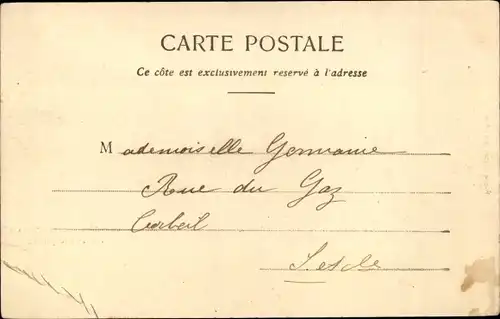 CARTE POSTALE
Ce côte est exclusivement reservé à l'adresse
Mademoiselle Germaine
Rue du Gaz
Corbeil
S. et O.